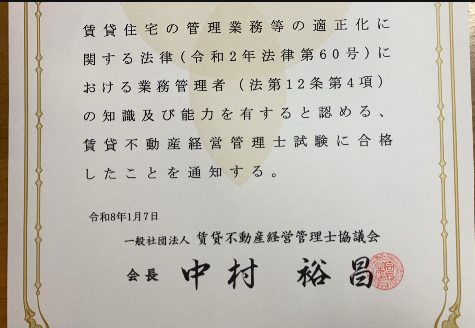 賃貸住宅の管理業務等の適正化に
関する法律(令和2年法律第60号)に
おける業務管理者(法第12条第4項)
の知識及び能力を有すると認める、
賃貸不動産経営管理士試験に合格
したことを通知する。
令和8年1月7日
一般社団法人 賃貸不動産経営管理士協議会
会長 中村 裕昌